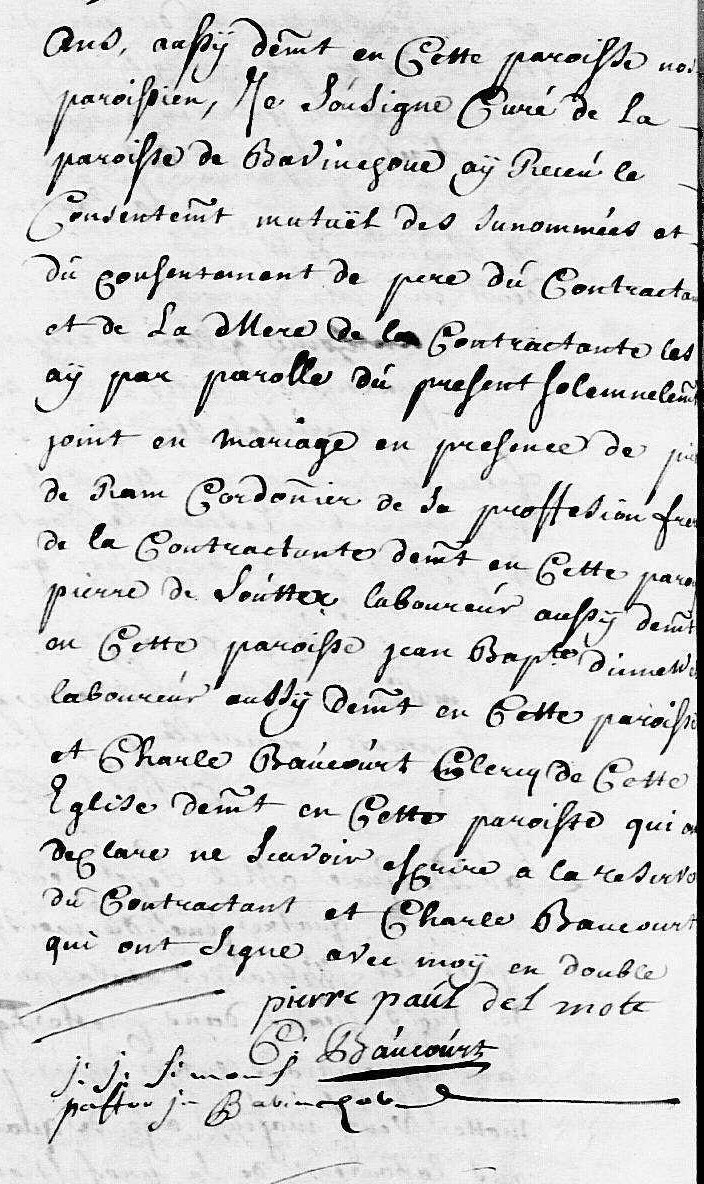 Ans, aussÿ demt en Cette paroisse
paroissien, Je Soúsigne Curé de la
paroisse de Bavinchove aÿ Receú le
Consentemt mutuël des Sunommées et
dú Consentement de pere dú Contractan
et de la Mere de la Contractante les
aÿ par parolle dú present solemnelemt
joint en mariage en presence de
de Ram Cordonier de sa proffesion frer
de la Contractante demt en Cette paroi
pierre de Soútter laboureúr aussÿ demt
en Cette paroisse jean Bapte
laboureúr aussÿ demt en Cette paroisse
et Charle Baúcoúrt Clercq de Cette
Eglise demt en Cette paroisse qui on
declare ne scavoir escrire a la reserve
dú Contractant et Charle Baucourt
qui ont signe avec moÿ en double
pierre paúl del mote
C: Baúcoúrt
j: j: Simons
pastor in Bavinchove